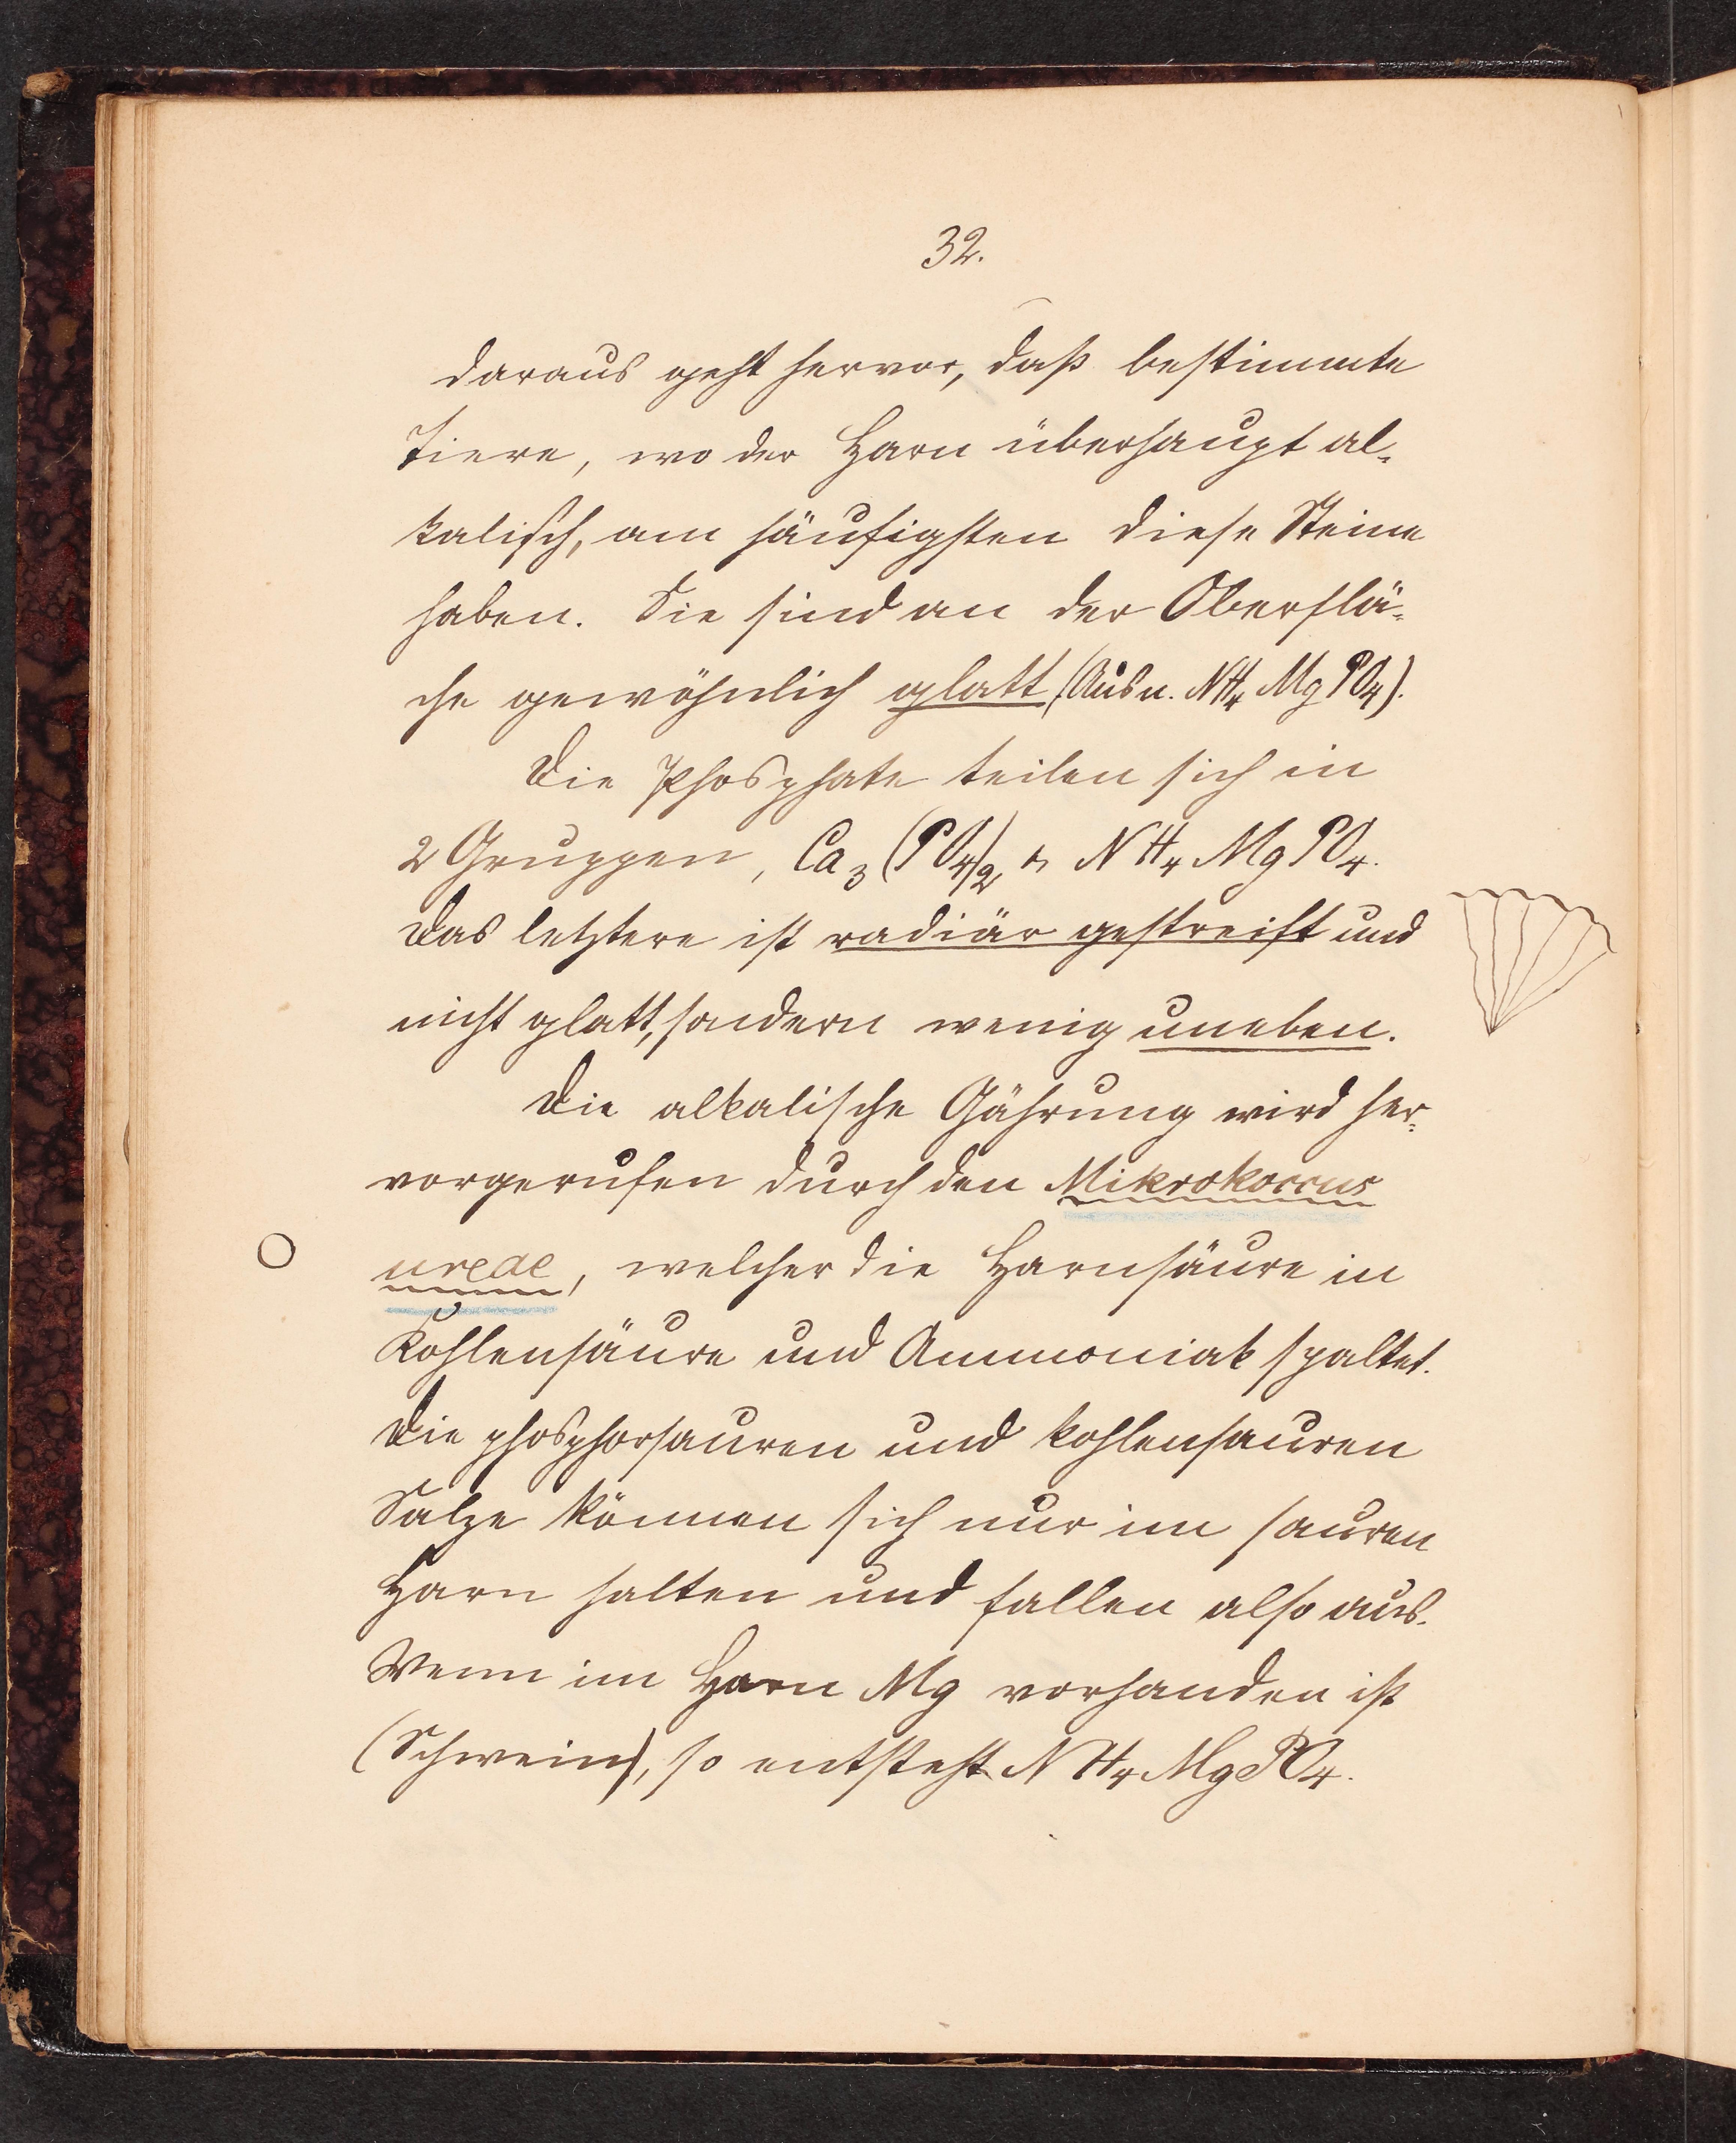 32.
daraus geht hervor, daß bestimmte
Tiere, wo der Harn überhaupt al-
kalisch, am häufigsten diese Steine
haben. Sie sind an der Oberflä-
che gewöhnlich glatt (Ausn. NH₄ Mg PO₄).
Die Phosphate teilen sich in
2 Gruppen, Ca₃ (PO₄)₂ u. NH₄ Mg PO₄.
Das letztere ist radiär gestreift und
nicht glatt, sondern wenig uneben.
Die alkalische Gährung wird her-
vorgerufen durch den Mikrokoccus
ureae, welcher die Harnsäure in
Kohlensäure und Ammoniak spaltet.
Die phosphorsauren und kohlensauren
Salze können sich nur im sauren
Harn halten und fallen also aus.
Wenn im Harn Mg vorhanden ist
(Schwein), so entsteht NH₄ Mg PO₄.